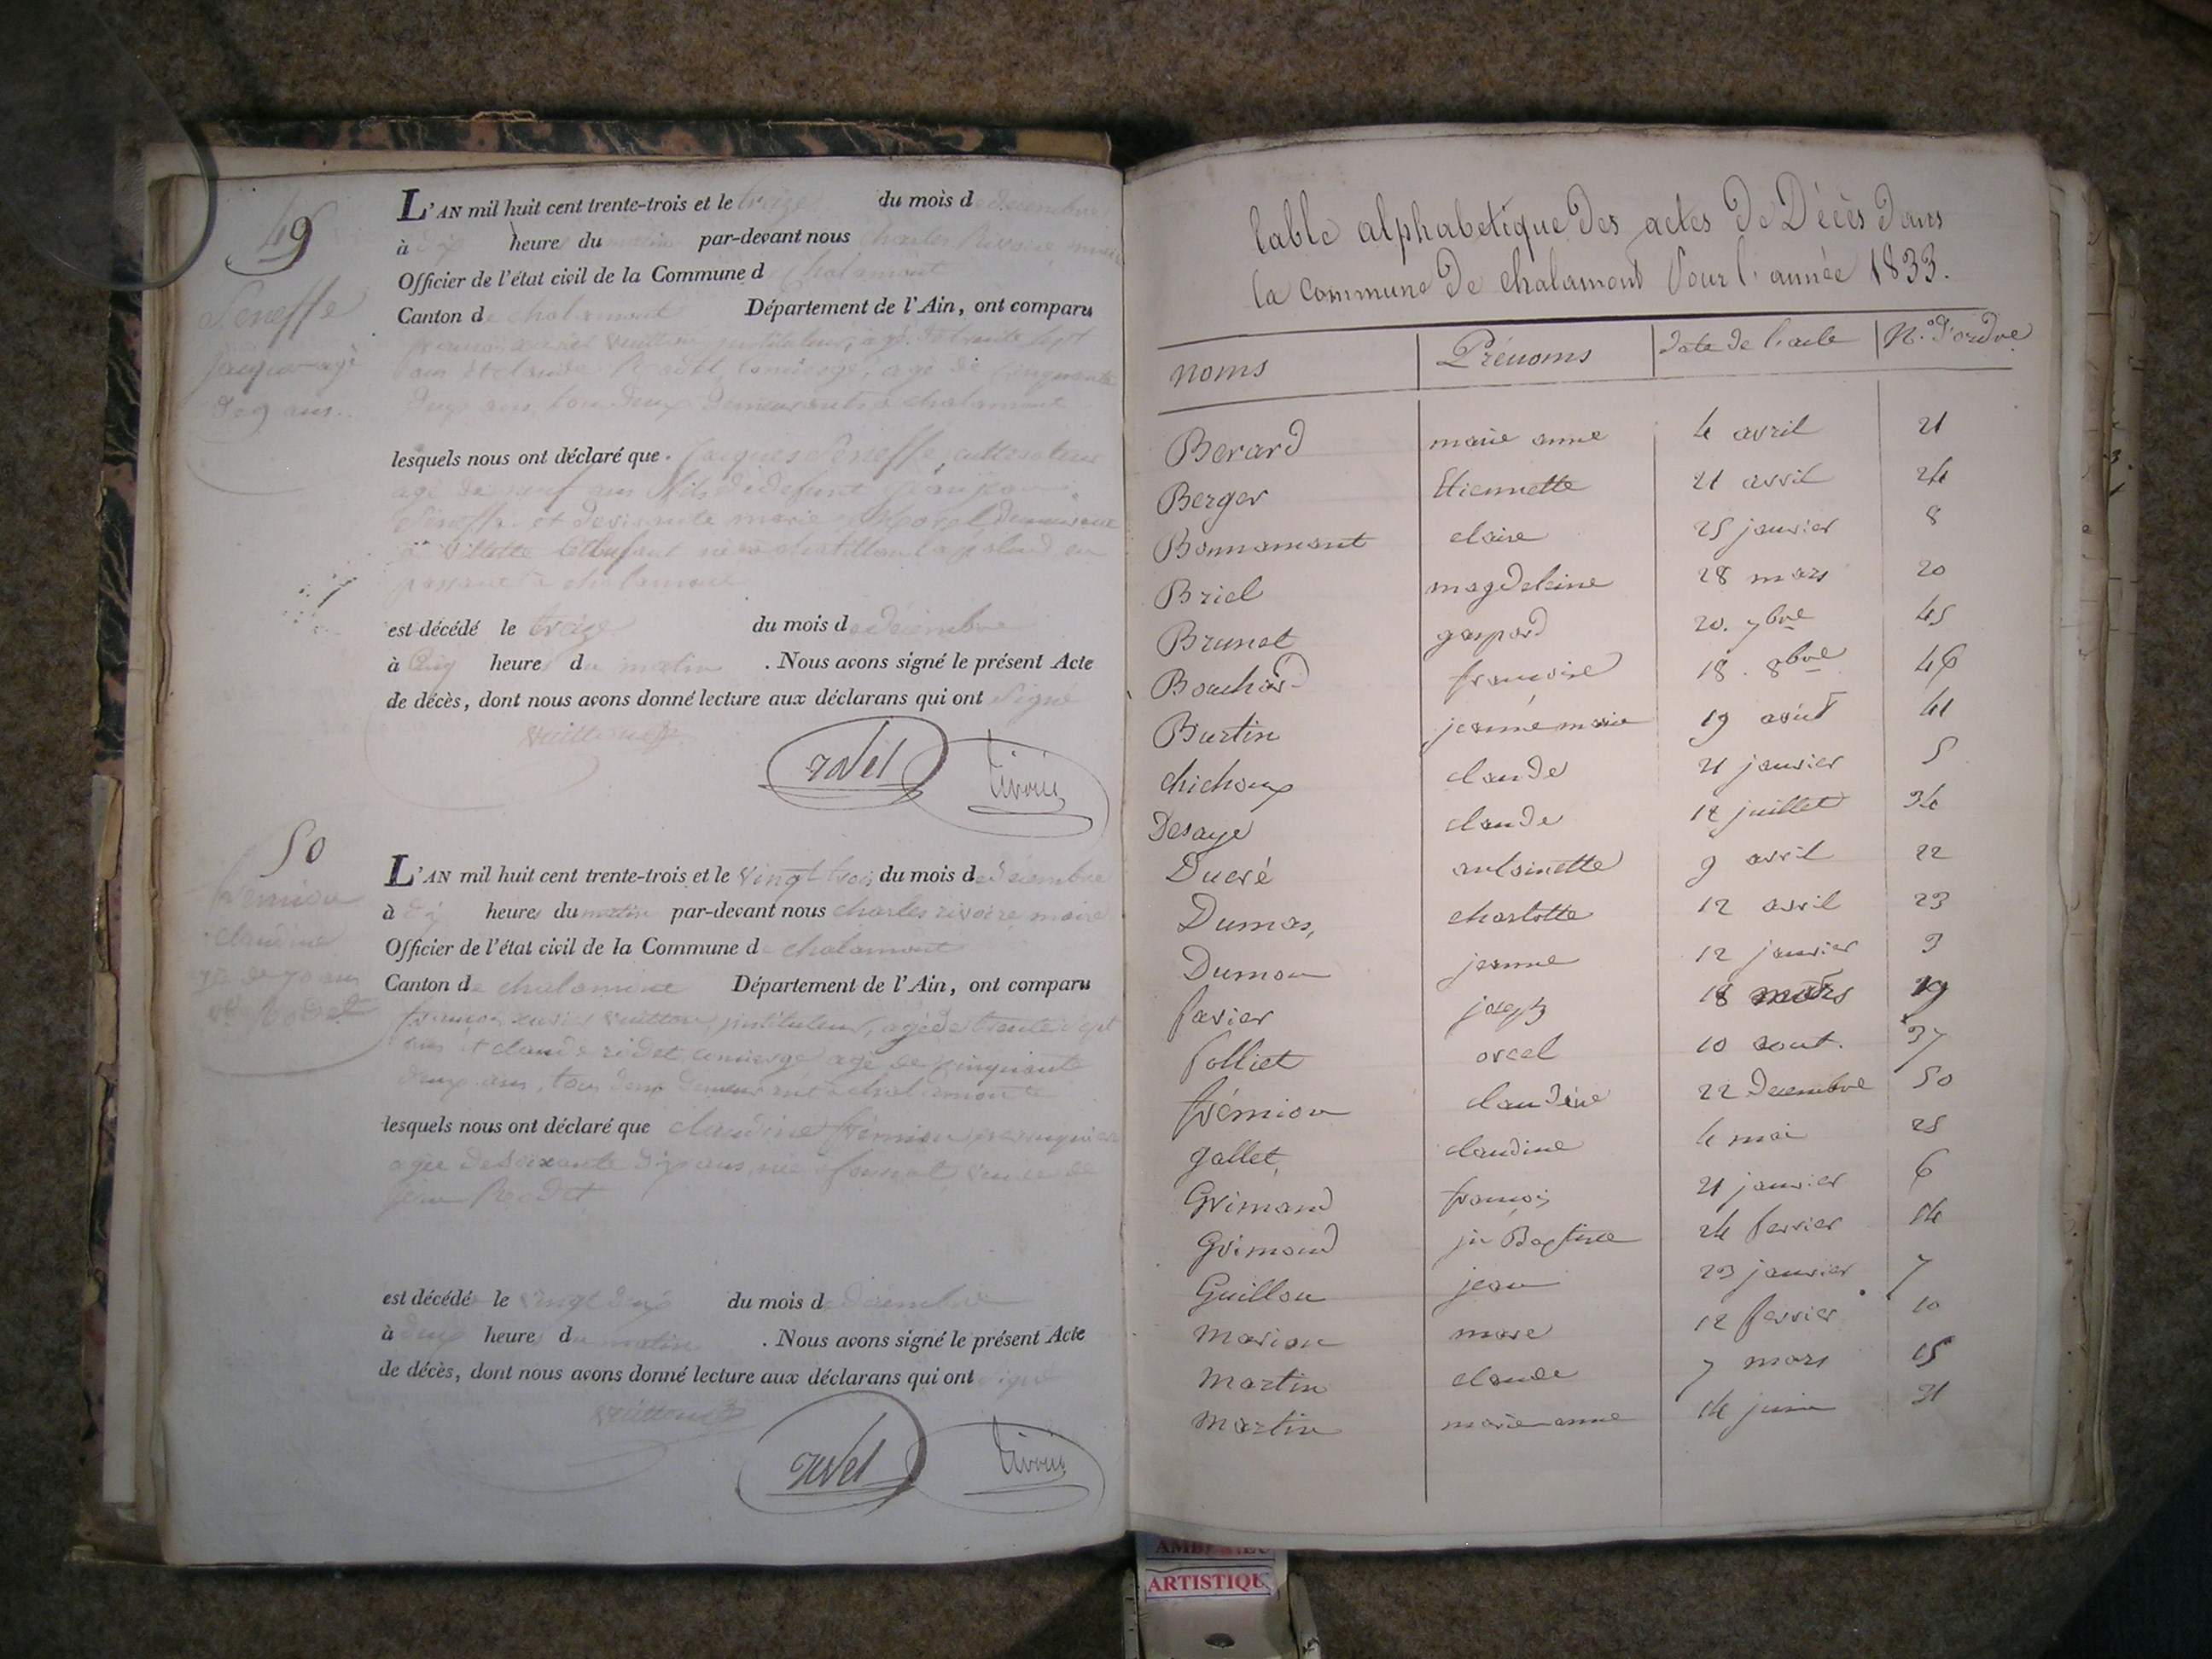 49
Seneffe
jacques agé
de 9 ans.
L'AN mil huit cent trente-trois et le treize du mois de décembre
à dix heures du matin par-devant nous charles Rivoire, maire
Officier de l'état civil de la Commune de Chalamont
Canton de chalamont Département de l'Ain, ont comparu
françois xavier vuitton, instituteur, agé de trente sept
ans et claude Rodet, concierge, agé de cinquante
deux ans, tous deux demeurants a chalamont
lesquels nous ont déclaré que jacques Seneffe, cultivateur
agé de neuf ans fils de defunt
Seneffe et de vivante marie demeurant
à Villette cet enfant né a chatillon la palud en
passant à chalamont
est décédé le treize du mois de décembre
à cinq heures du matin . Nous avons signé le présent Acte
de décès, dont nous avons donné lecture aux déclarans qui ont signé
vuitton
rodet rivoire
50
frémion
claudine
agée de 70 ans
ve Rodet
L'AN mil huit cent trente-trois et le vingt trois du mois de décembre
à dix heures du matin par-devant nous charles rivoire, maire
Officier de l'état civil de la Commune de chalamont
Canton de chalamont Département de l'Ain, ont comparu
françois xavier vuitton, instituteur, agé de trente sept
ans et claude rodet, concierge agé de cinquante
deux ans, tous deux demeurant a chalamont
lesquels nous ont déclaré que claudine frémion
agée de soixante dix ans, née veuve de
Rodet
est décédée le vingt deux du mois de décembre
à deux heures du matin . Nous avons signé le présent Acte
de décès, dont nous avons donné lecture aux déclarans qui ont signé
vuitton
rodet rivoire
table alphabetique des actes de Décès dans
la commune de chalamont Pour l'année 1833.
noms Prénoms date de l'acte N.º d'ordre
Berard marie anne 4 avril 21
Berger Etiennette 21 avril 24
Bonnamont claire 25 janvier 8
Briel magdeleine 28 mars 20
Brunet gaspard 20. 7bre 45
Bouchard françoise 18. 8bre 46
Burtin jeanne marie 19 août 41
chichoux claude 21 janvier 5
Desaye claude 12 juillet 34
Ducré antoinette 9 avril 22
Dumas, charlotte 12 avril 23
Dumon jeanne 12 janvier 3
favier joseph 18 mars 19
folliet orcel 10 aout. 37
frémion claudine 22 decembre 50
gallet, claudine 4 mai 25
Grimand françois 21 janvier 6
Grimand jn Baptiste 24 fevrier 14
Guillon jean 23 janvier 7
marion marc 12 fevrier 10
martin claude 7 mars 15
martin marie anne 14 juin 31
ARTISTIQU